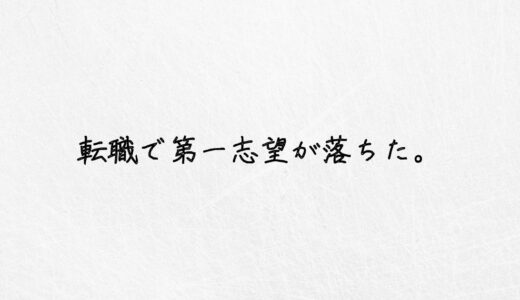 転職で第一志望が落ちた。